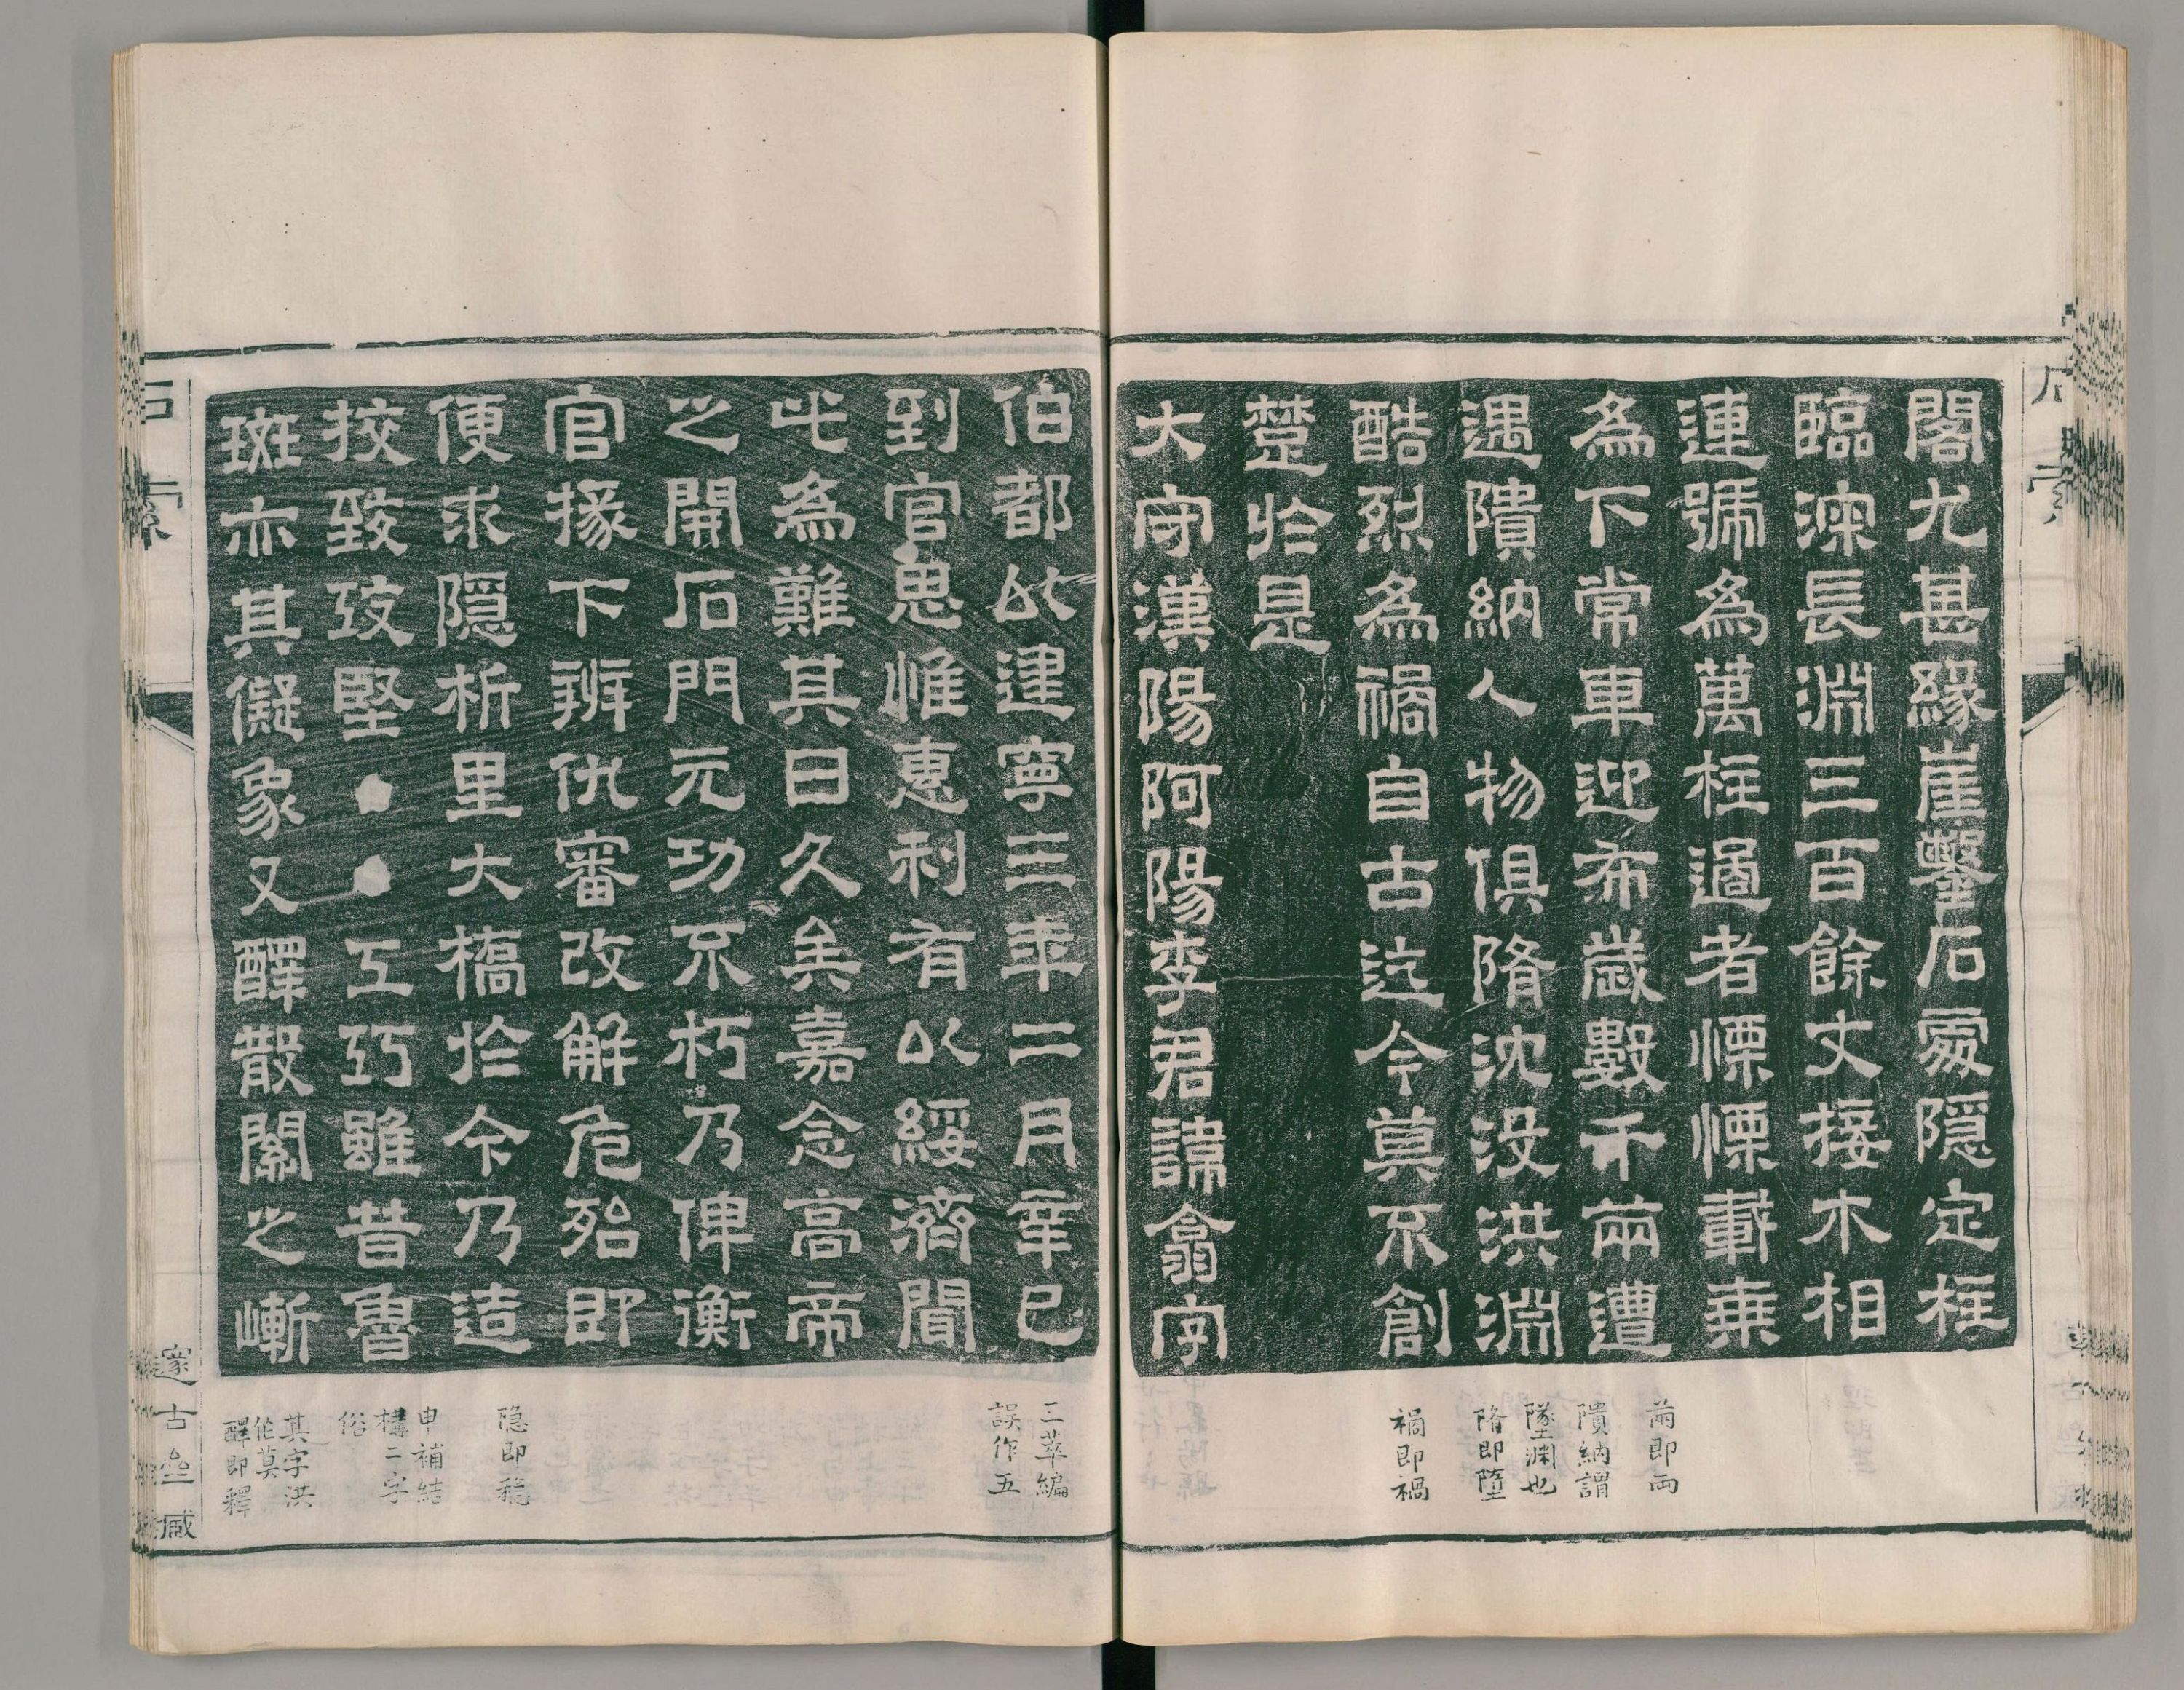 閣尤甚緣崖鑿石處隱定柱
臨深長淵三百餘丈接木相
連號爲萬柱過者慄慄載乗
爲下常車迎布歲數千兩遭
遇隤納人物俱隋沈没洪淵
酷烈爲禍自古迄今莫不創
楚於是
大守漢陽阿陽李君諱翕字
伯都以建寧三年二月辛巳
到官思惟惠利有以綏濟聞
此爲難其日久矣嘉念高帝
之開石門元功不朽乃俾衡
官掾下辨仇審改解危殆即
便求隱析里大橋於今乃造
挍致攻堅
工巧雖昔魯
斑亦其儗象又醳散關之嶃
㒳即両
隤納謂
墜渊也
隋即墮
禍即禍
三萃編
誤作五
隐即穏
申補結
構二字
俗
其字洪
作莫
醳即釋
石索
邃古𡉏臧